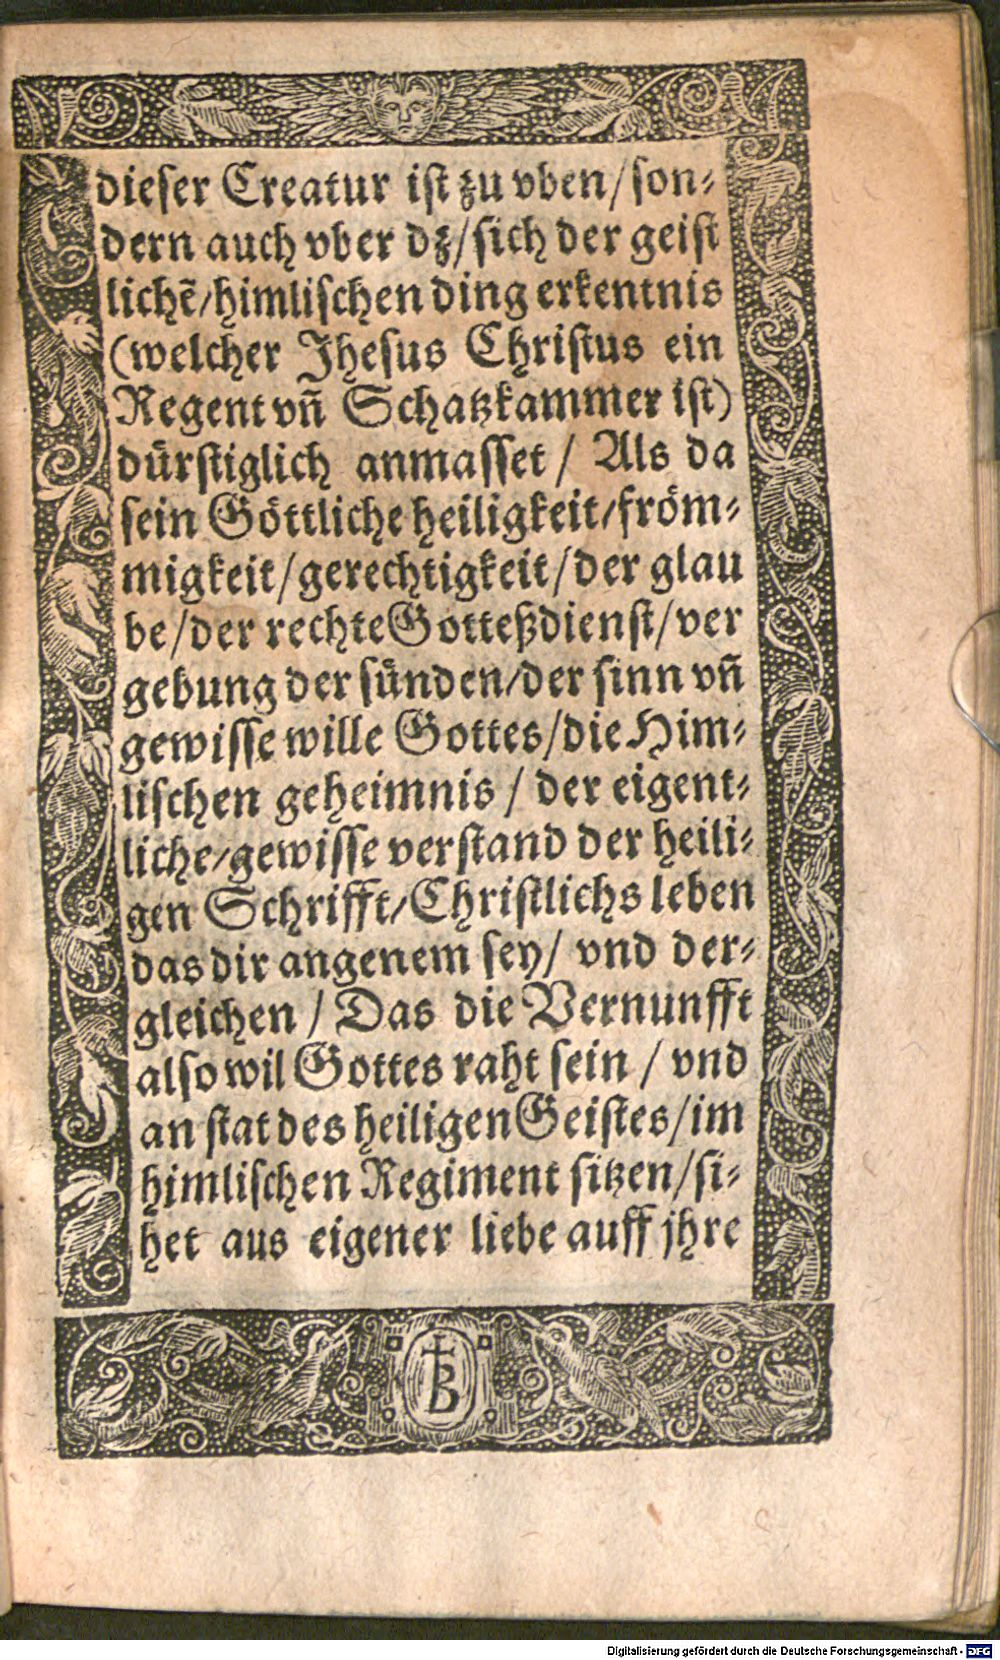 dieser Creatur ist zu vben/son⸗
dern auch vber dz/sich der geist
lichē/himlischen ding erkentnis
(welcher Jhesus Christus ein
Regent vn̄ Schatzkammer ist)
dürstiglich anmasset / Als da
sein Göttliche heiligkeit/fröm⸗
migkeit/gerechtigkeit/der glau
be/der rechte Gotteßdienst/ver
gebung der sünden/der sinn vn̄
gewisse wille Gottes/die Him⸗
lischen geheimnis / der eigent⸗
liche/gewisse verstand der heili⸗
gen Schrifft/Christlichs leben
das dir angenem sey/ vnd der⸗
gleichen / Das die Vernunfft
also wil Gottes raht sein / vnd
an stat des heiligen Geistes/im
himlischen Regiment sitzen/si⸗
het aus eigener liebe auff jhre
B
Digitalisierung gefördert durch die Deutsche Forschungsgemeinschaft - DFG